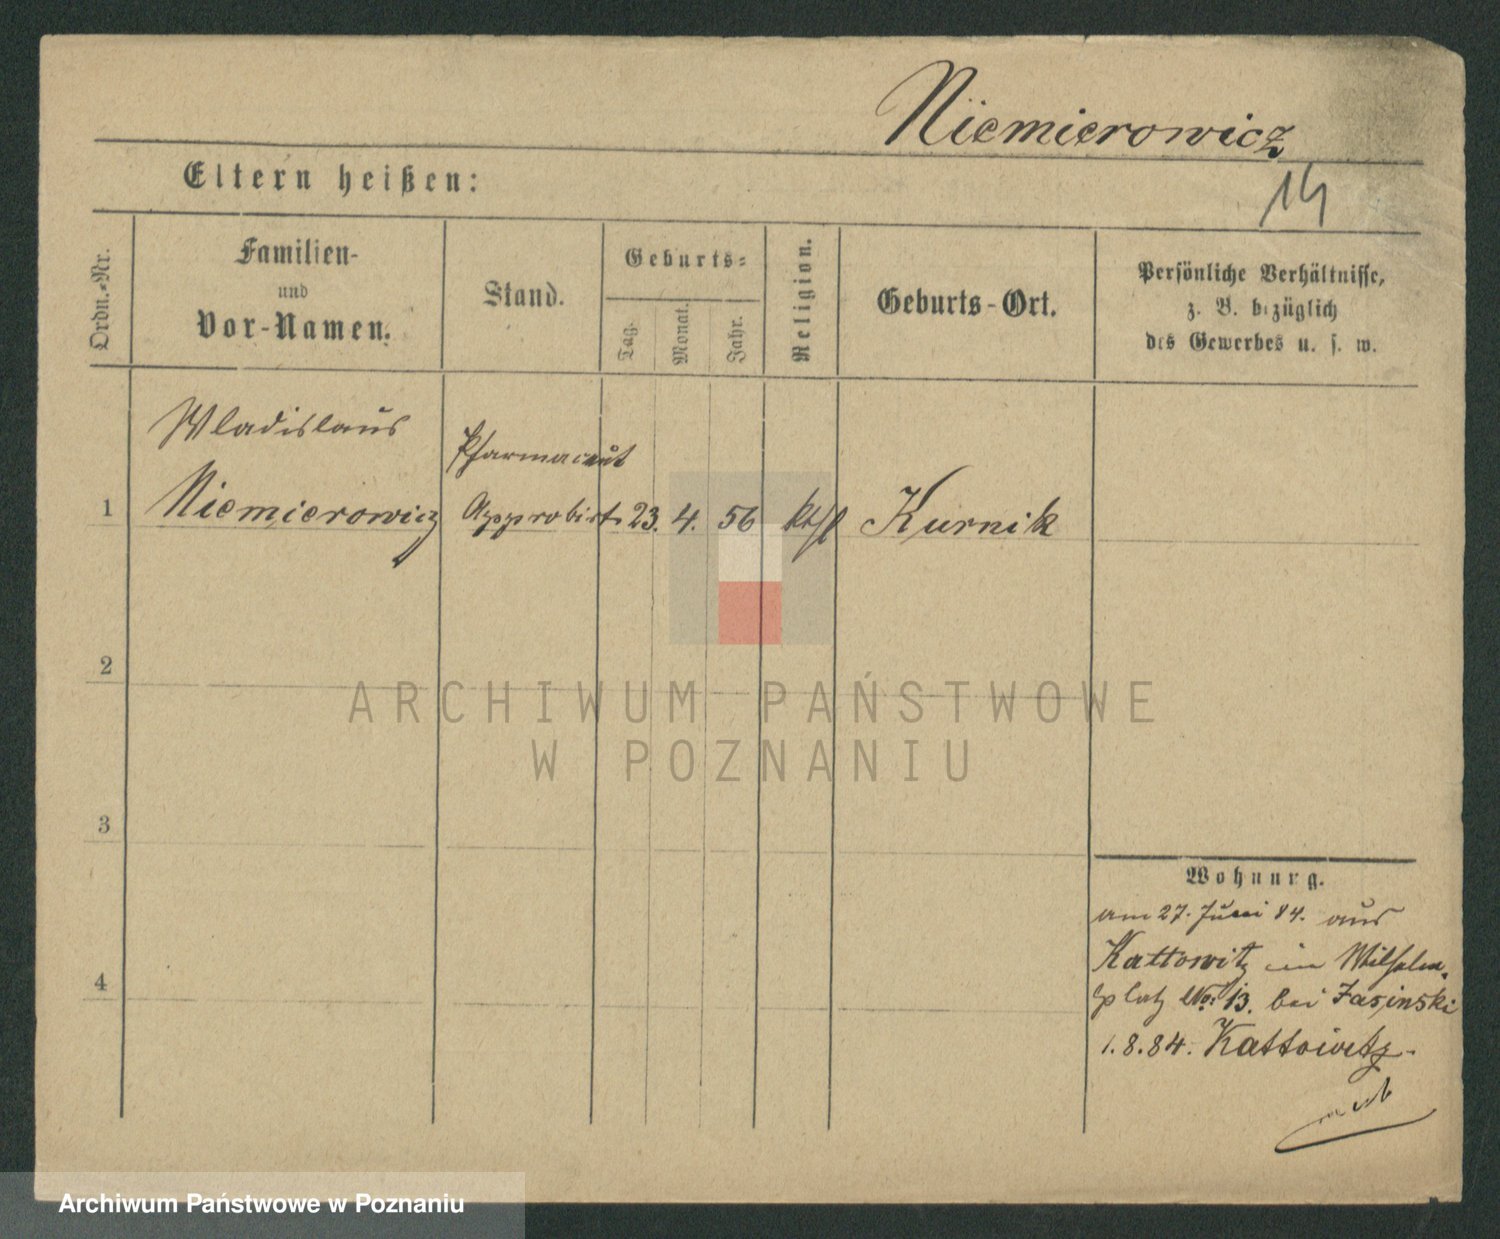 Niemierowicz
14
Eltern heißen:
Ordn.-Nr.
Familien-
und
Vor-Namen.
Stand.
Geburts-
Tag.
Monat.
Jahr.
Religion.
Geburts-Ort.
Persönliche Verhältnisse,
z. B. bezüglich
des Gewerbes u. s. w.
Wladislaus
Pharmaceut
1 Niemierowicz Approbirt 23. 4. 56 kthl Kurnik
2
ARCHIWUM PAŃSTWOWE
W POZNANIU
3
Wohnung.
am 27. Juni 84. aus
Kattowitz in Wilhelm-
4
platz No: 13. bei Jasinski
1.8.84. Kattowitz.
Archiwum Państwowe w Poznaniu